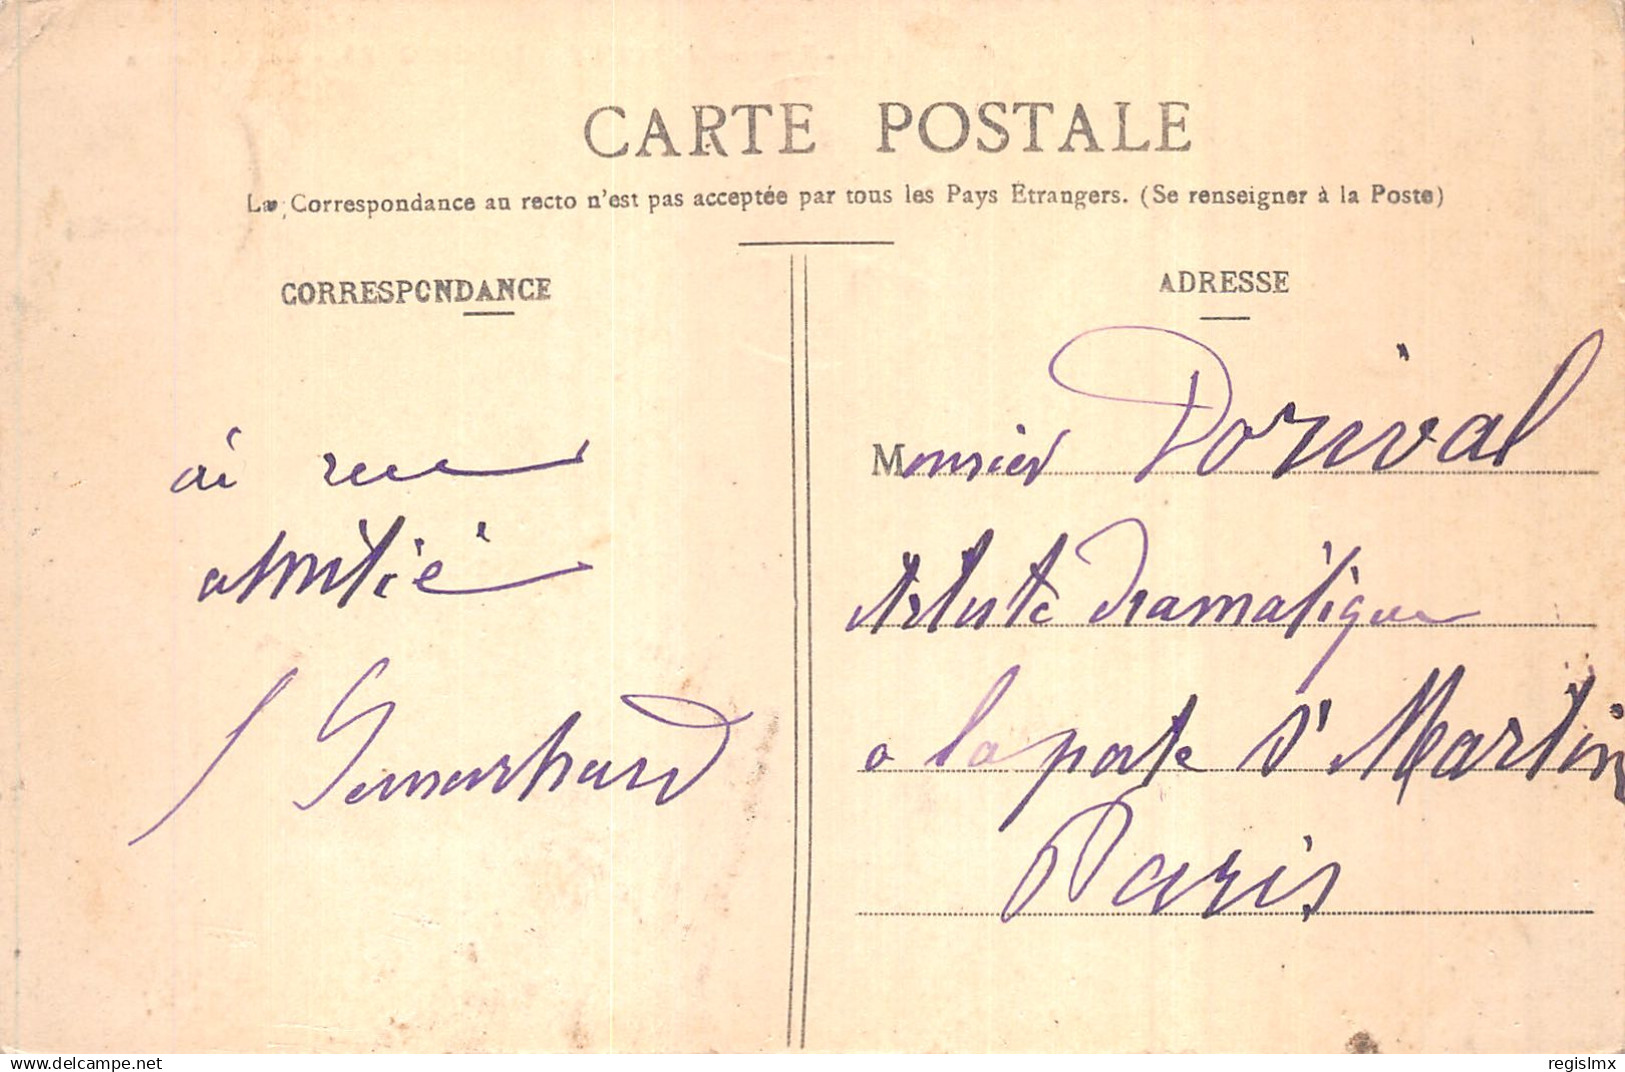 CARTE POSTALE
La Correspondance au recto n'est pas acceptée par tous les Pays Étrangers. (Se renseigner à la Poste)
CORRESPONDANCE
amitié
ADRESSE
Monsieur Dorival
Artiste dramatique
a la porte St Martin
Paris
www.delcampe.net
regislmx